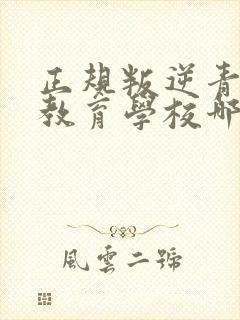 正規叛逆青
教育學校哪
風雲二號